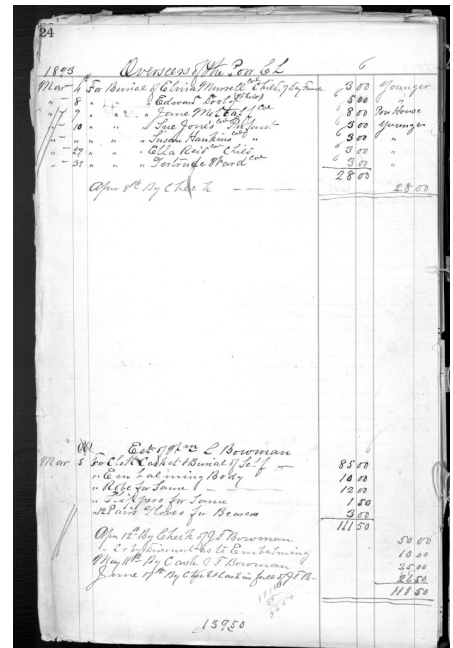 24
1893 Overseers of the Poor CL 6
Mar 4 For Burial of Elvira Murrell Child 3 00 Younger
" 8 " " " Edward 5 00 "
" 9 " " " Jane Metcalf col 8 00 Poor House
" 10 " " " Sue Jones col Infant 3 00 Younger
" " " " " Susan Hankins " 3 00 "
" 27 " " " Ella Reid col Child 3 00 "
" " " " Gertrude Ward col 3 00 "
28 00
Apr 8th By Check 28 00
Est of Wm L Bowman
Mar 5 For Cloth Casket & Burial of Self 85 00
" Embalming Body 10 00
" Robe for Same 12 00
" Slippers for Same 1 50
" 12 Pairs Gloves for Bearers 3 00
111 50
Apr 12th By Check of J T Bowman 50 00
" By Discount as to Embalming 10 00
May 10th By Cash J T Bowman 25 00
June 17th By Check & Cash in full of J T B 26 50
111 50
139 50